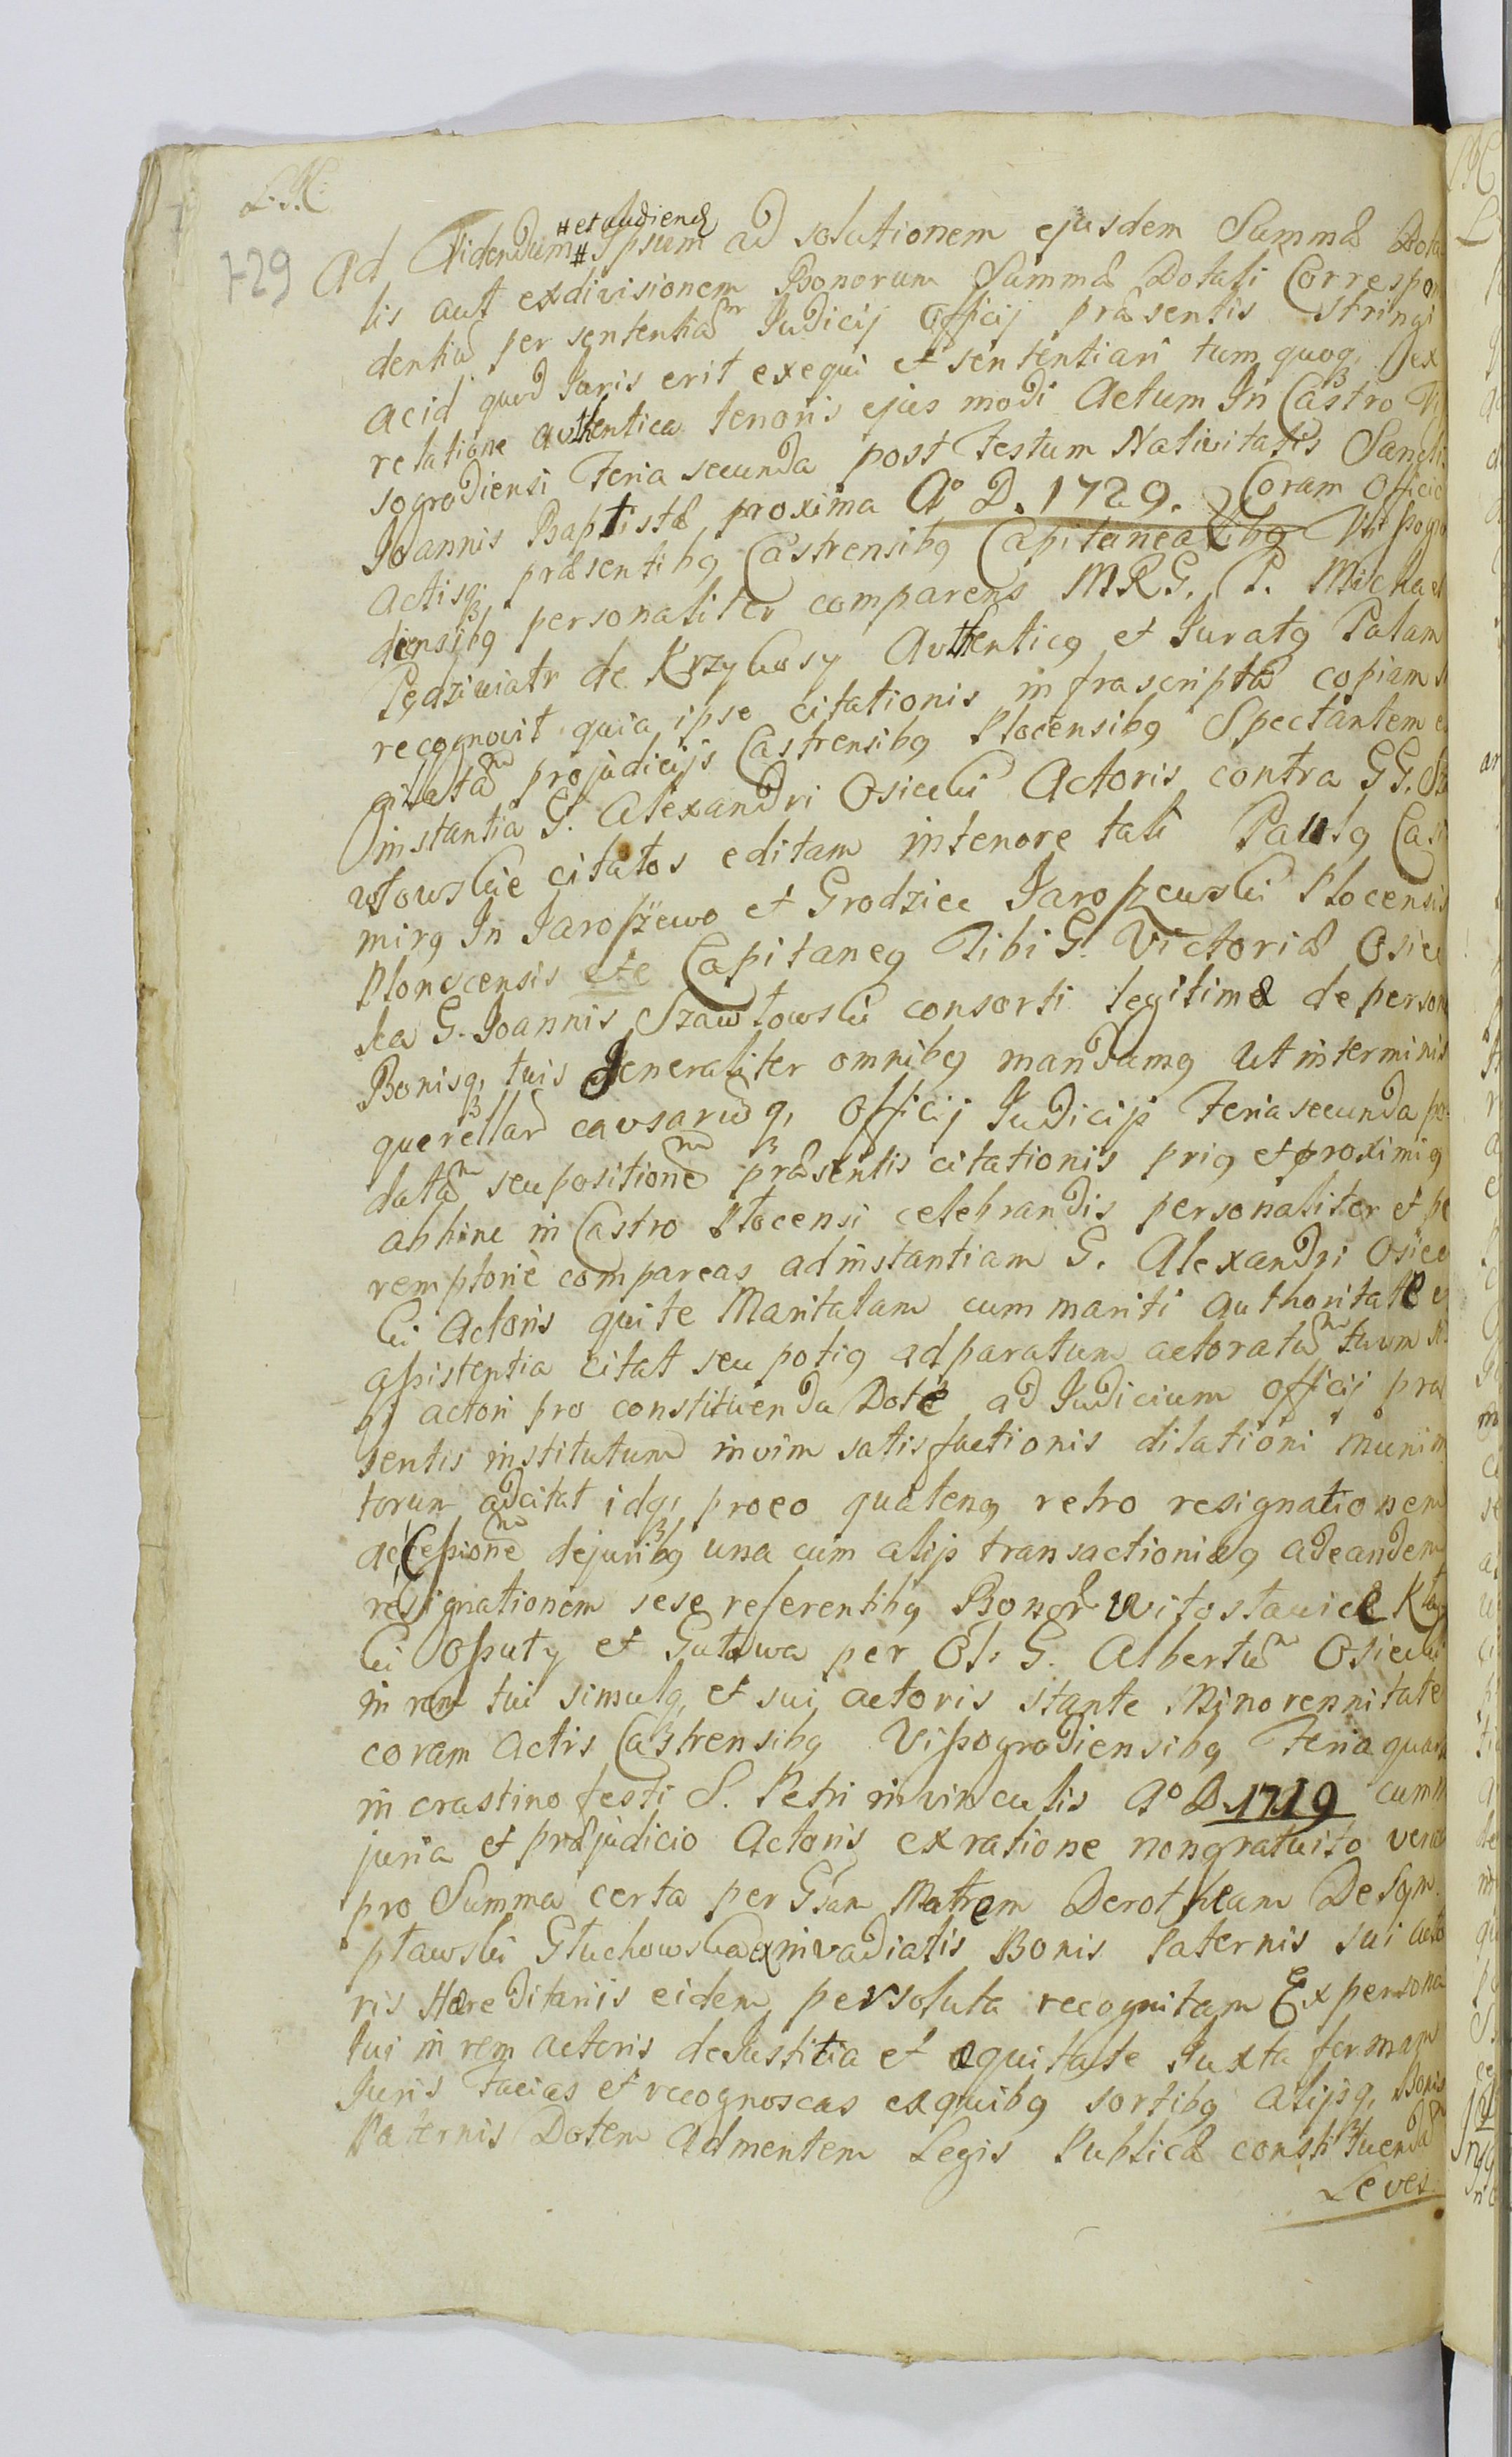 729
# et audiend
Ad Videndum # Ipsum ad solutionem ejusdem Summæ Dota
lis aut exdivisionem Bonorum Summæ Dotali Correspon
dentiũ per sententiãm Judicij Officij præsentis stringi
acid quod Juris erit exequi et sententiari tum quoq, ex
relatione authentica tenoris ejus modi Actum In Castro Vi
sogrodiensi Feria secunda post Festum Nativitatis Sancti
Joannis Baptistæ proxima Aº D. 1729. Coram Officio
Actisq, præsentibg Castrensibg Capitanealibg Vissogro
diensibg personaliter comparens MRG. P. Michael
Pędziwiatr de Krzykosy Authenticg et Juratg Palam
recognovit quia ipse citationis infrascriptæ copiam
gilatãm projudicijs Castrensibg Plocensibg Spectantem
instantia G. Alexandri Osiecki Actoris contra GG. Sza
włowskie citatos editam intenore tali Paulg Casi
mirg In Jaroszewo et Grodziec Jaroszewski Plocensis
Plonscensis etc Capitaneg Tibi G. Victoriæ Osiec
ka G. Joannis Szawłowski consorti legitimæ de person
Bonisq, tuis Generaliter omnibg mandamg ut in terminis
querellarũ causarũq, Officij Judicijs Feria secunda po
datãm seu positionẽm præsentis citationis prig et proximig
abhinc in Castro Plocensi celebrandis personaliter et pe
remptoriè compareas ad instantiam G. Alexandri Osiec
ki Actoris qui te Maritatam cum mariti Authoritate
assistentia citat seu potig ad paratum actoratũm tuum si
bi actori pro constituenda Dote ad Judicium Officij præ
sentis institutum invim satisfactionis dilationi munim
torum adcitat idq, proeo quateng retro resignationem
ac Cessionẽm dejuribg una cum alijs transactionibg adeandem
resignationem sese referentibg Bonor Witosławice Kło
ki Opsuty et Gutowa per Ol. G. Albertũm Osiecki
in rem tui simulq, et sui actoris stante Minorennitate
coram Actis Castrensibg Vissogrodiensibg Feria quarta
in crastino festi S. Petri in vinculis Aº D. 1719 cum in
juria et præjudicio Actoris exratione non gratuito vero
pro Summa certa per Gsam Matrem Dorotheam De
ptawski Głuchowska exinvadiatis Bonis Paternis sui acto
ris Hæreditariis eidem persoluta recognitam Ex persona
tui in rem actoris de Justitia et æquitate Juxta formam
Juris Facias et recognoscas exquibg sortibg alijsq, Bonis
Paternis Dotem Admentem Legis Publicæ constituendãm
Leves